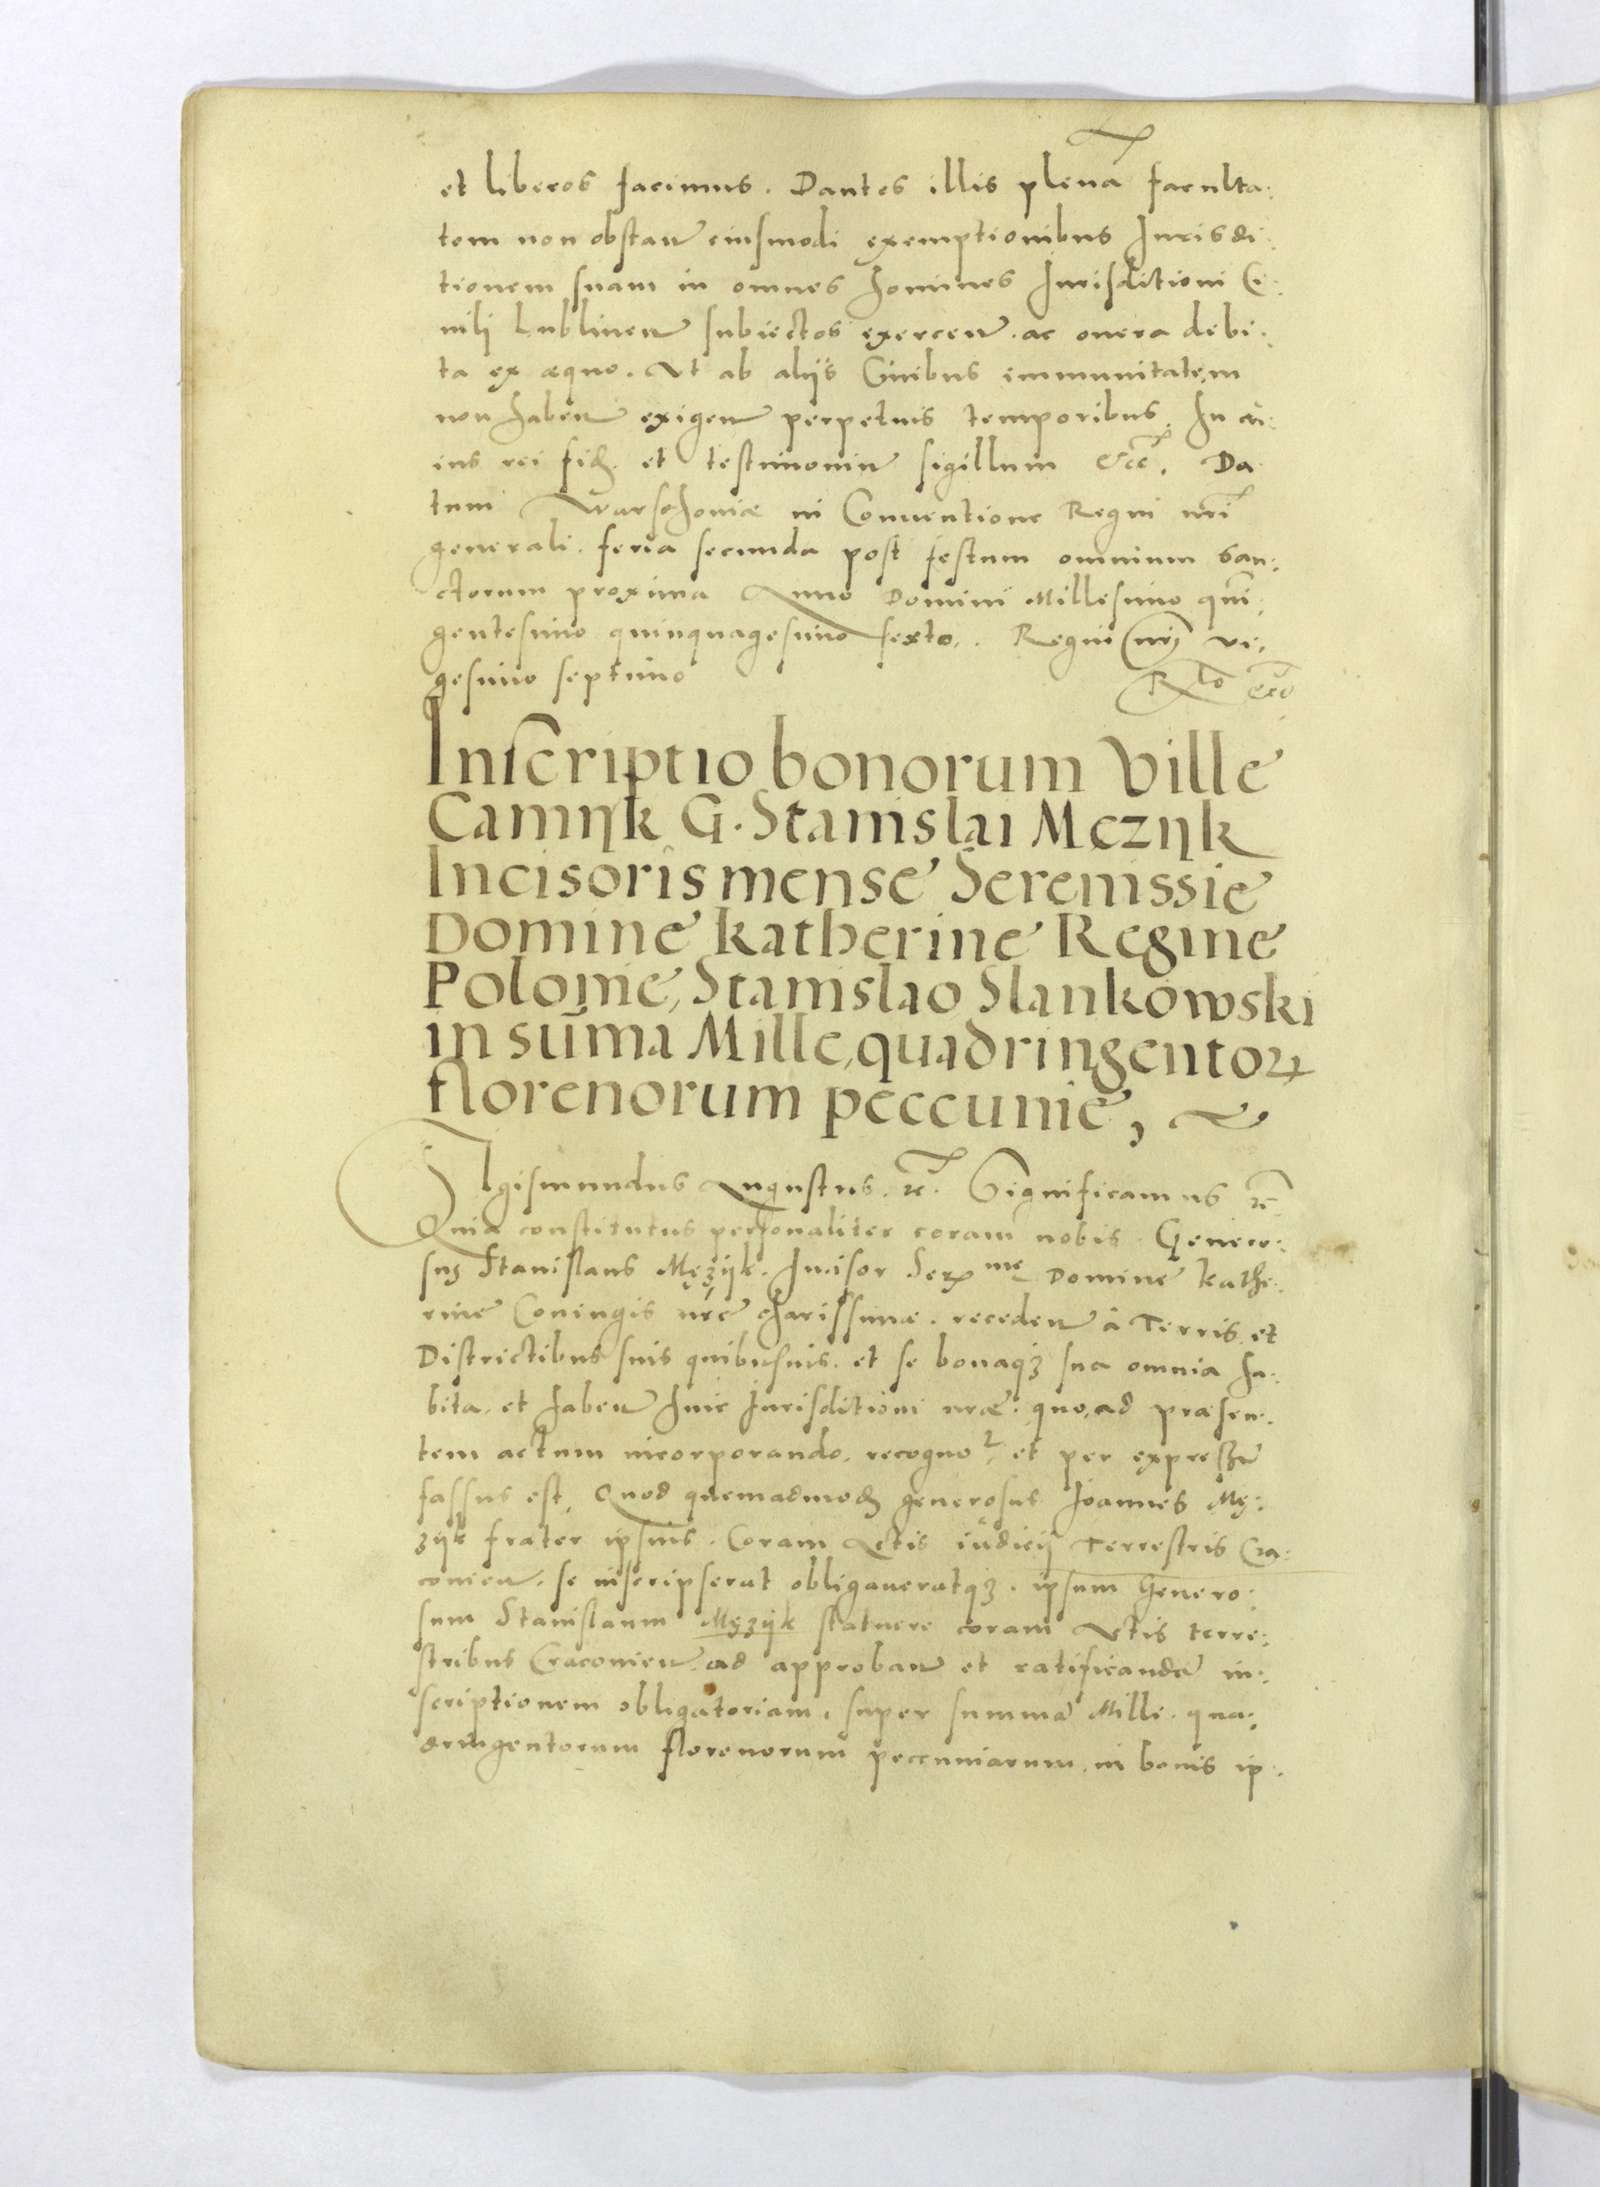 et liberos facimus. Dantes illis plenā faculta:
tem non obstan̄ eiusmodi exemptionibus Jurisdi:
tionem suam in omnes homines Jurisditioni Ci:
uili Lublinen̄ subiectos exercen̄. ac onera debi:
ta ex æquo. Vt ab alijs Ciuibus immunitatem
non haben̄ exigen̄ perpetuis temporibus. In cu:
ius rei fid. et testimoniū sigillum &cc̄. Da
tum Warschoviæ in Conuentione Regni nr̄i
generali. feria secunda post festum omnium San:
ctorum proxima Anno Domini Millesimo quin:
gentesimo quinquagesimo sexto. Regni nr̄i vi:
gesimo septimo
Inscriptio bonorum Ville
Camijk G. Stanislai Męzijk
Incisoris mense Serenissie
Domine Katherine Regine
Polonie, Stanislao Slankowski
in sum̄a Mille, quadringentoꝝ
florenorum peccunie,
Sigismundus Augustus. &c̄. Significamus &c̄
Quia constitutus personaliter coram nobis. Genero:
sus Stanislaus Męzijk. Incisor Ser^me Domine Kathe:
rine Coniugis nr̄e charissimæ. receden̄ à Terris et
Districtibus suis quibusuis. et se bonaqꝫ sua omnia ha:
bita. et haben̄ huic Jurisditioni nr̄æ. quo ad præsen:
tem actum incorporando. recogno^t, et per expressū
fassus est, Quod quemadmod generosus Joannes Mę:
zijk frater ipsius. Coram Actis iudicij Terrestris Cra:
couien̄. se inscripserat obligaueratqꝫ. ipsum Genero:
sum Stanislaum Męzijk statuere coram Actis terre:
stribus Cracouien̄. ad approban̄ et ratificandā in:
scriptionem obligatoriam. super summā Milli. qua:
dringentorum florenorum peccuniarum. in bonis ip: